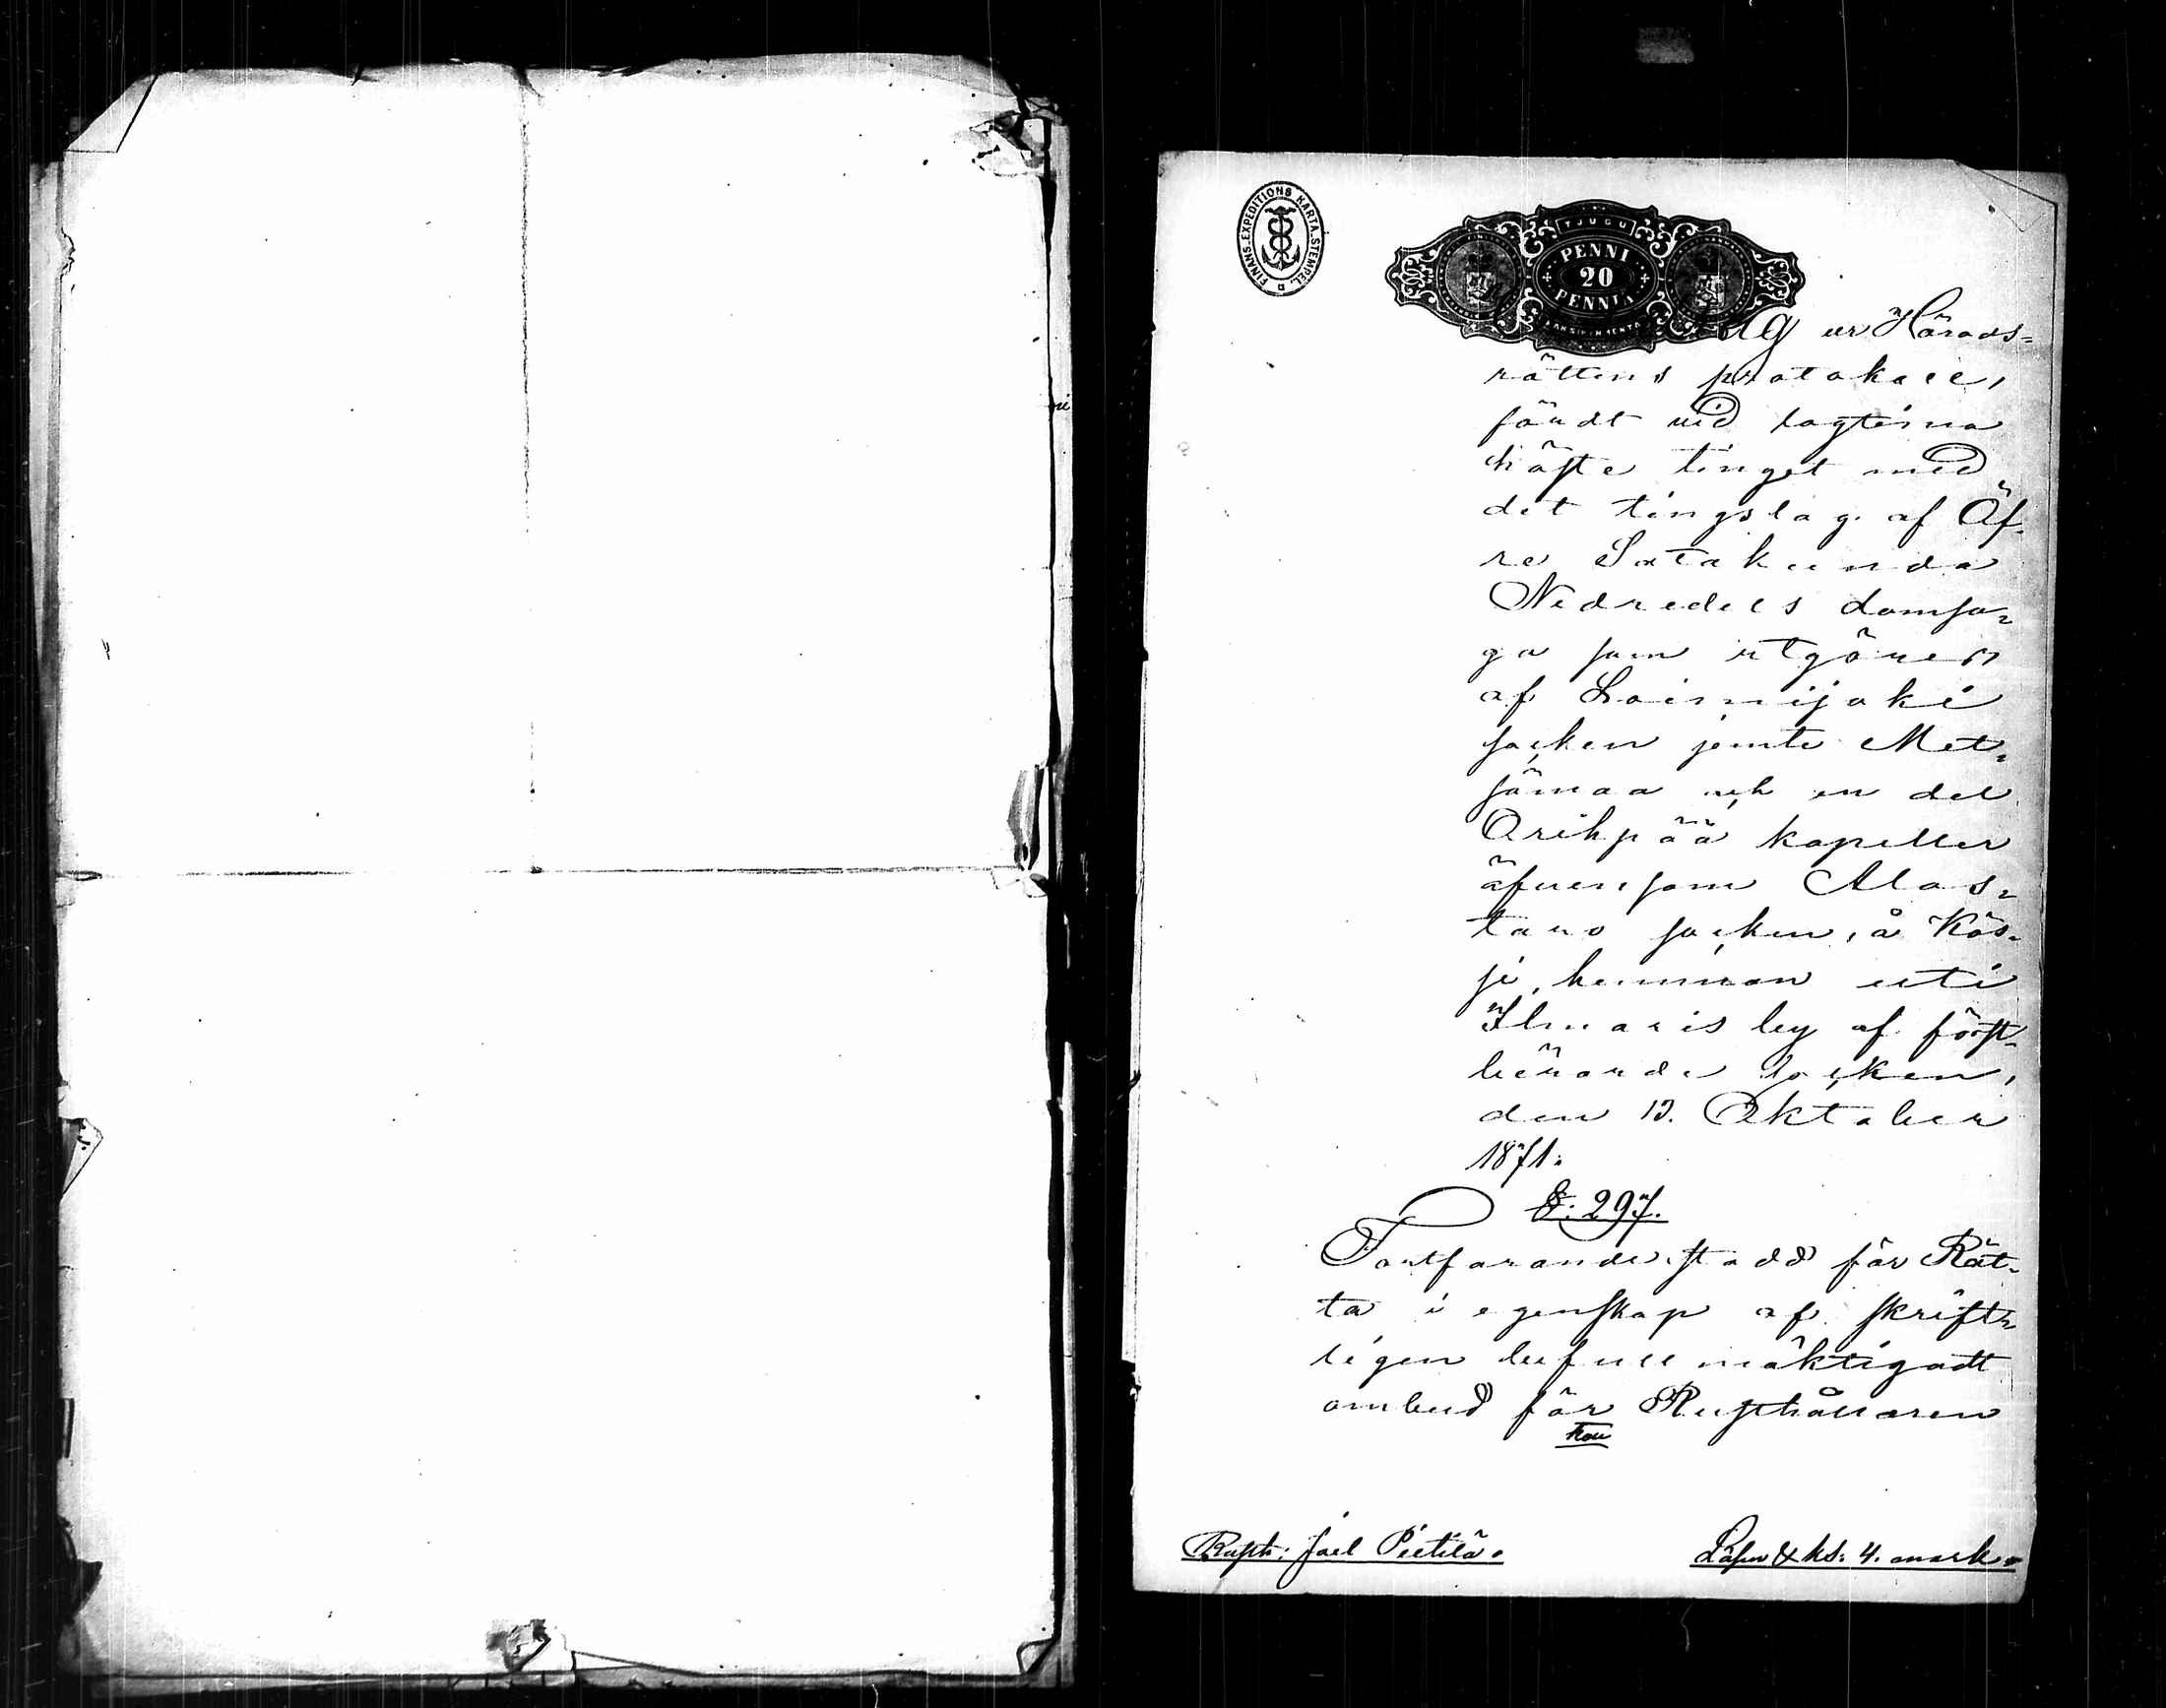 FINANS.EXPEDITIONS KARTA.STEMPEL. D
TJUGU
PENNI
20
PENNIÄ
KAKSIKYMMENTÄ
ur Härads-
rättens protokoll,
fördt vid lagtima
höste tinget med
det tingslag af Öf-
re Satakunda
Nedredels domsa-
ga som utgöres
af Loimijoki
socken jemte Met-
sämaa och en del
Orihpää kapeller
äfvensom Alas-
taro socken, å Kös-
si, hemman uti
Ilmaris by af först-
berörde socken,
den 13. Oktober
1871:
§: 297.
Fortfarande stadd för Rät-
ta i egenskap af skrift-
ligen befullmäktigadt
ombud för Rusthållaren
Rusth: Joel Pietilä.
Lösen & ks: 4. mark.